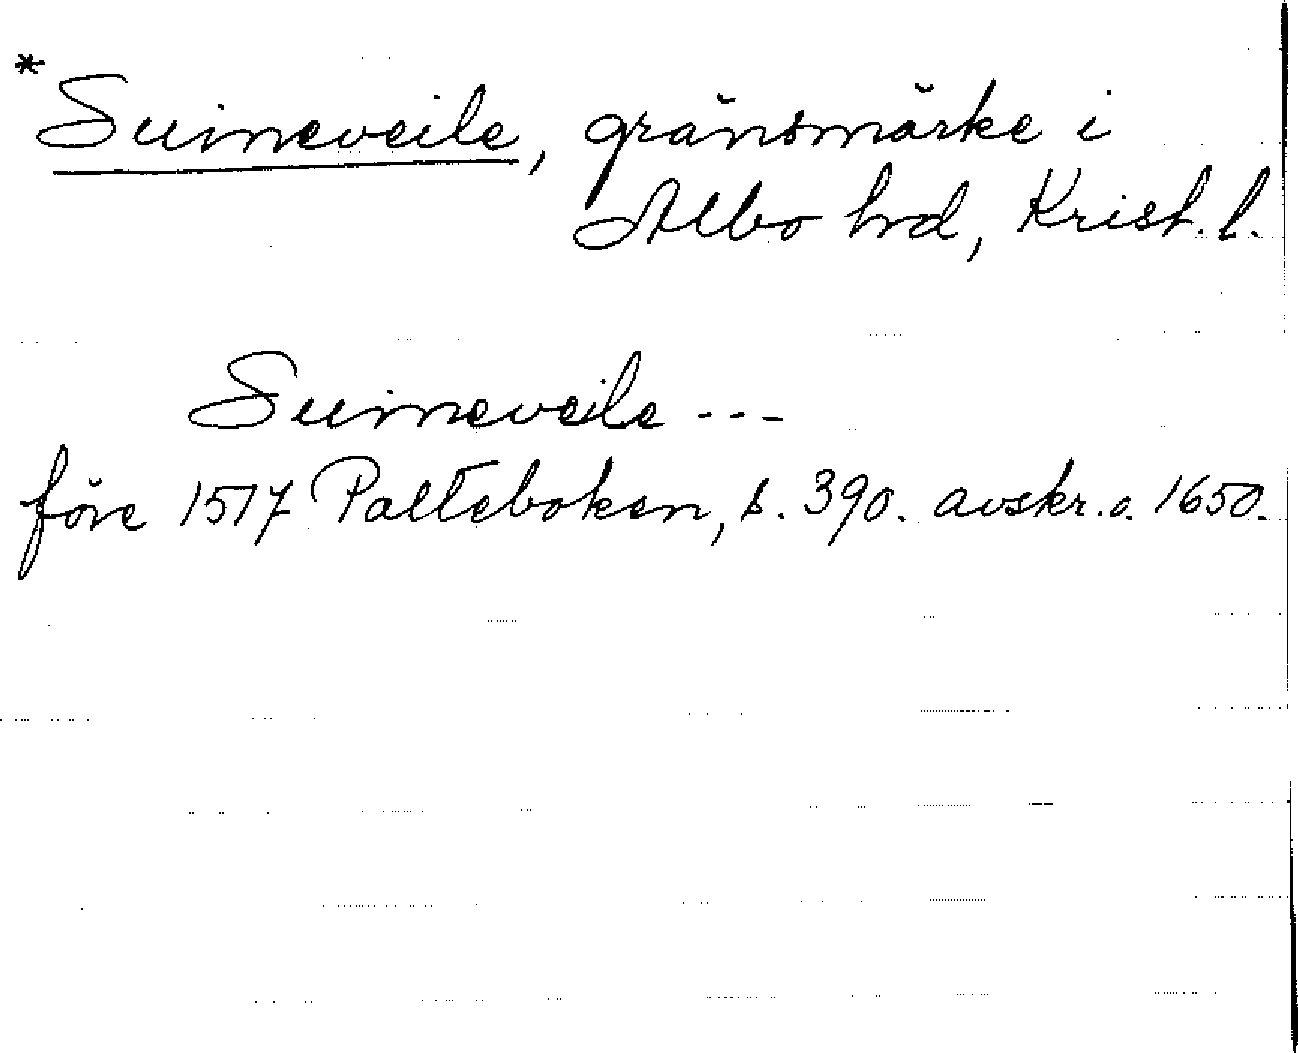 * Suineveile, gränsmärke i
Albo hrd, Krist. l.
Suineveile ---
före 1517 Palteboken, s. 390. avskr. o. 1650.